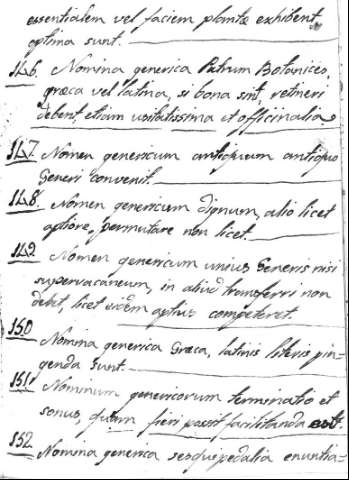 essentialem vel faciem plantæ exhibent
optima sunt.
146. Nomina generica Patrum Botanices,
græca vel latina, si bona sint, retineri
debent, etiam usitatissima et officinalia
147. Nomen genericum antiquum antiquo
Generi convenit.
148. Nomen genericum dignum, alio licet
aptiore, permutare non licet.
149 Nomen genericum unius Generis nisi
supervacaneum, in aliud transferri non
debet, licet eidem aptius competeret.
150 Nomina generica Græca, latinis literis pin-
genda sunt.
151. Nominum genericorum terminatio et
sonus, quam fieri possit facilitanda est.
152 Nomina generica sesquipedalia enuntia-